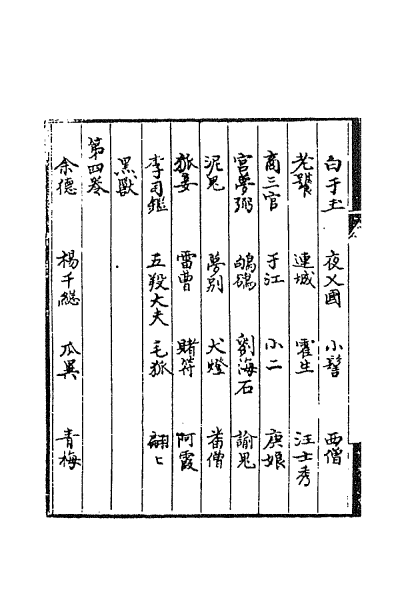 白于玉 夜乂國 小髻 西僧
老饕 連城 霍生 汪士秀
商三官 于江 小二 庚娘
宮夢弼 鴝鵒 劉海石 諭鬼
泥鬼 夢别 犬燈 番僧
狐妾 雷曹 賭符 阿霞
李司鑑 五羖大夫 毛狐 翩〻
黑獸
第四卷
余德 楊千總 瓜異 青梅